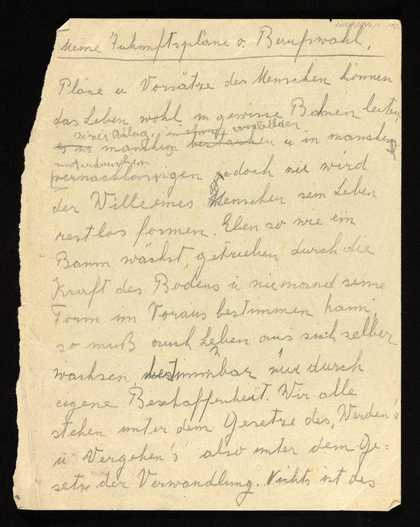 Meine Zukunftspläne u. Berufswahl.
Pläne u Vorsätze des Menschen können
das Leben wohl in gewisse Bahnen leiten,
seine Anlagen
u in manchem
vernachlässigen jedoch nie wird
der Wille eines Menschen sein Leben
restlos formen. Eben so wie ein
Baum wächst, getrieben durch die
Kraft des Bodens u niemand seine
Form im Voraus bestimmen kann,
so muß auch Leben aus sich selber
wachsen, bestimmbar nur durch
eigene Beschaffenheit. Wir alle
stehen unter dem Gesetze des „Werden's
u Vergehen's" also unter dem Ge=
setze der Verwandlung. Nichts ist des